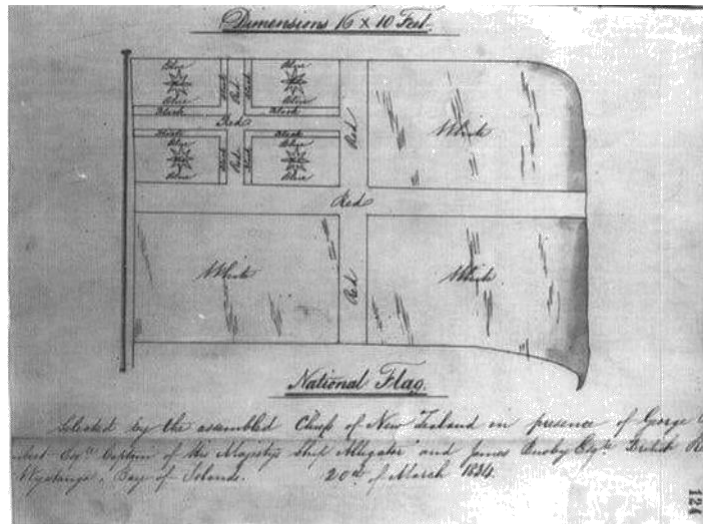 Dimensions 16 x 10 Feet.
Blue Blue
White White
Blue Blue
Black Red Black
Black Black
Red
Black Black
Blue Blue
White White
Blue Blue
Black Red Black
Red
White
Red
White
Red
White
National Flag.
Selected by the assembled Chiefs of New Zealand in presence of George
Esqre Captain of His Majesty's Ship Alligator and James Busby Esqre British
Bay of Islands. 20th of March 1834.
124